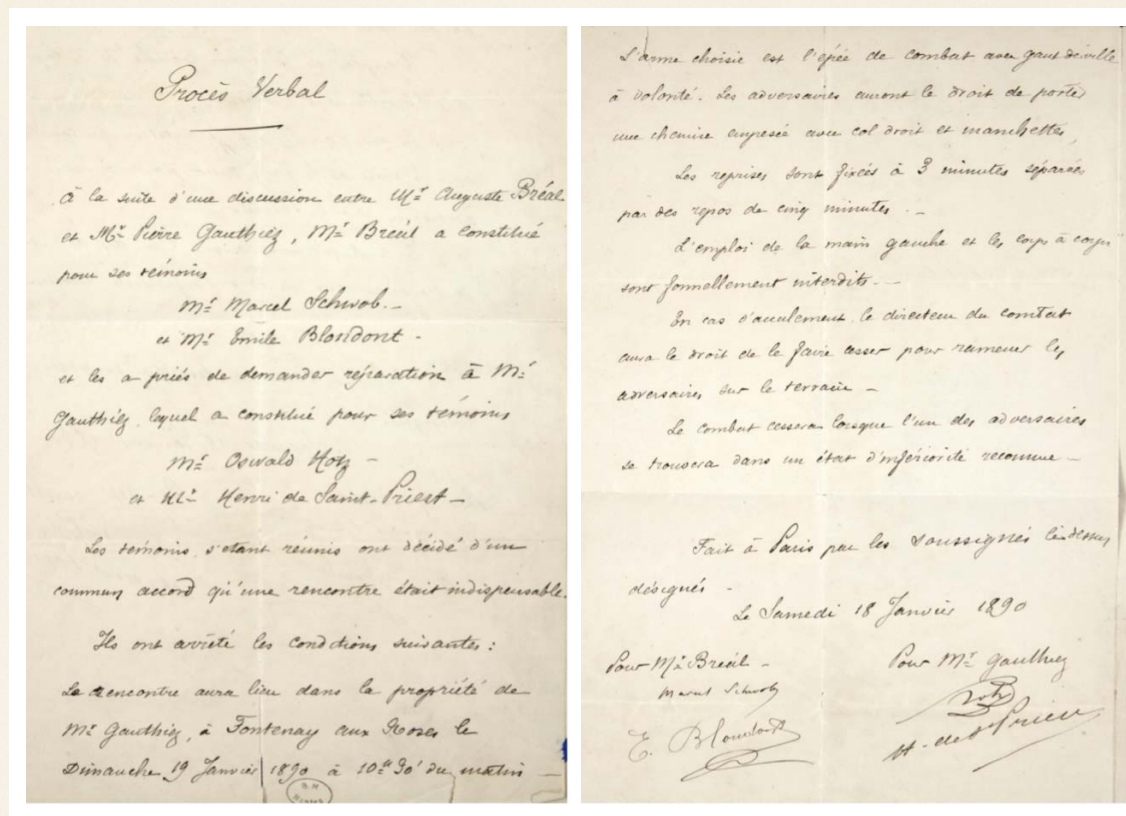 Procès Verbal
à la suite d'une discussion entre Mr Auguste Bréal
et Mr Pierre Gauthiez, Mr Bréal a constitué
pour ses témoins
Mr Marcel Schwob.-
et Mr Emile Blondont -
et les a priés de demander réparation à Mr
Gauthiez, lequel a constitué pour ses témoins
Mr Oswald Hotz -
et Mr Henri de Saint-Priest -
Les témoins s'étant réunis ont décidé d'un
commun accord qu'une rencontre était indispensable.
Ils ont arrêté les conditions suivantes :
La rencontre aura lieu dans la propriété de
Mr Gauthiez, à Fontenay aux Roses le
Dimanche 19 Janvier 1890 à 10H 30' du matin -
L'arme choisie est l'épée de combat avec gant de ville
à volonté. Les adversaires auront le droit de porter
une chemise empesée avec col droit et manchettes,
Les reprises sont fixées à 3 minutes séparées
par des repos de cinq minutes. -
L'emploi de la main gauche et les corps à corps
sont formellement interdits. -
En cas d'acculement le directeur du combat
aura le droit de le faire cesser pour ramener les
adversaires sur le terrain -
Le combat cessera lorsque l'un des adversaires
se trouvera dans un état d'infériorité reconnue -
Fait à Paris par les soussignés ci-dessus
désignés -
Le Samedi 18 Janvier 1890
Pour Mr Bréal -
Marcel Schwob
E. Blondont
Pour Mr Gauthiez
Hotz
H. de St Priest